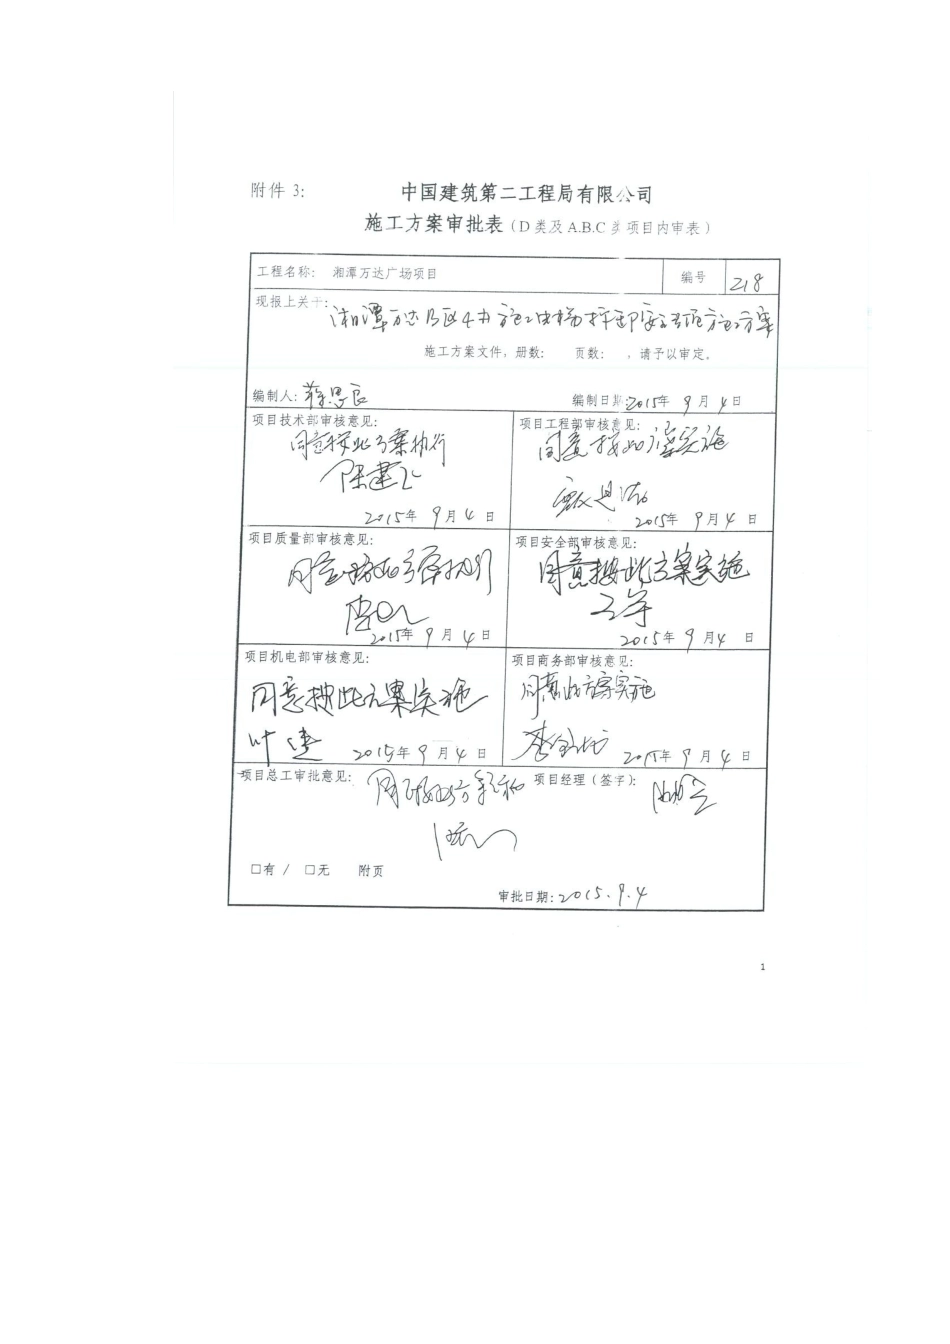 附件 3:
中国建筑第二工程局有限公司
施工方案审批表(D类及 A.B.C 类项目内审表)
工程名称: 湘潭万达广场项目
编号
218
现报上关于:
湘潭万达B区4#施工电梯拆卸安全专项施工方案
施工方案文件,册数: 页数: ,请予以审定。
编制人: 蒋思良
编制日期:2015年 9月 4日
项目技术部审核意见:
同意按此方案执行
陈建飞
2015年 9月 4日
项目工程部审核意见:
同意按此方案实施
2015年 9月 4日
项目质量部审核意见:
同意按此方案执行
2015年 9月 4日
项目安全部审核意见:
同意按此方案实施
2015年 9月 4日
项目机电部审核意见:
同意按此方案实施
叶建
2015年 9月 4日
项目商务部审核意见:
同意此方案实施
2015年 9月 4日
项目总工审批意见:
项目经理(签字):
□有 / □无 附页
审批日期:2015.9.4
1